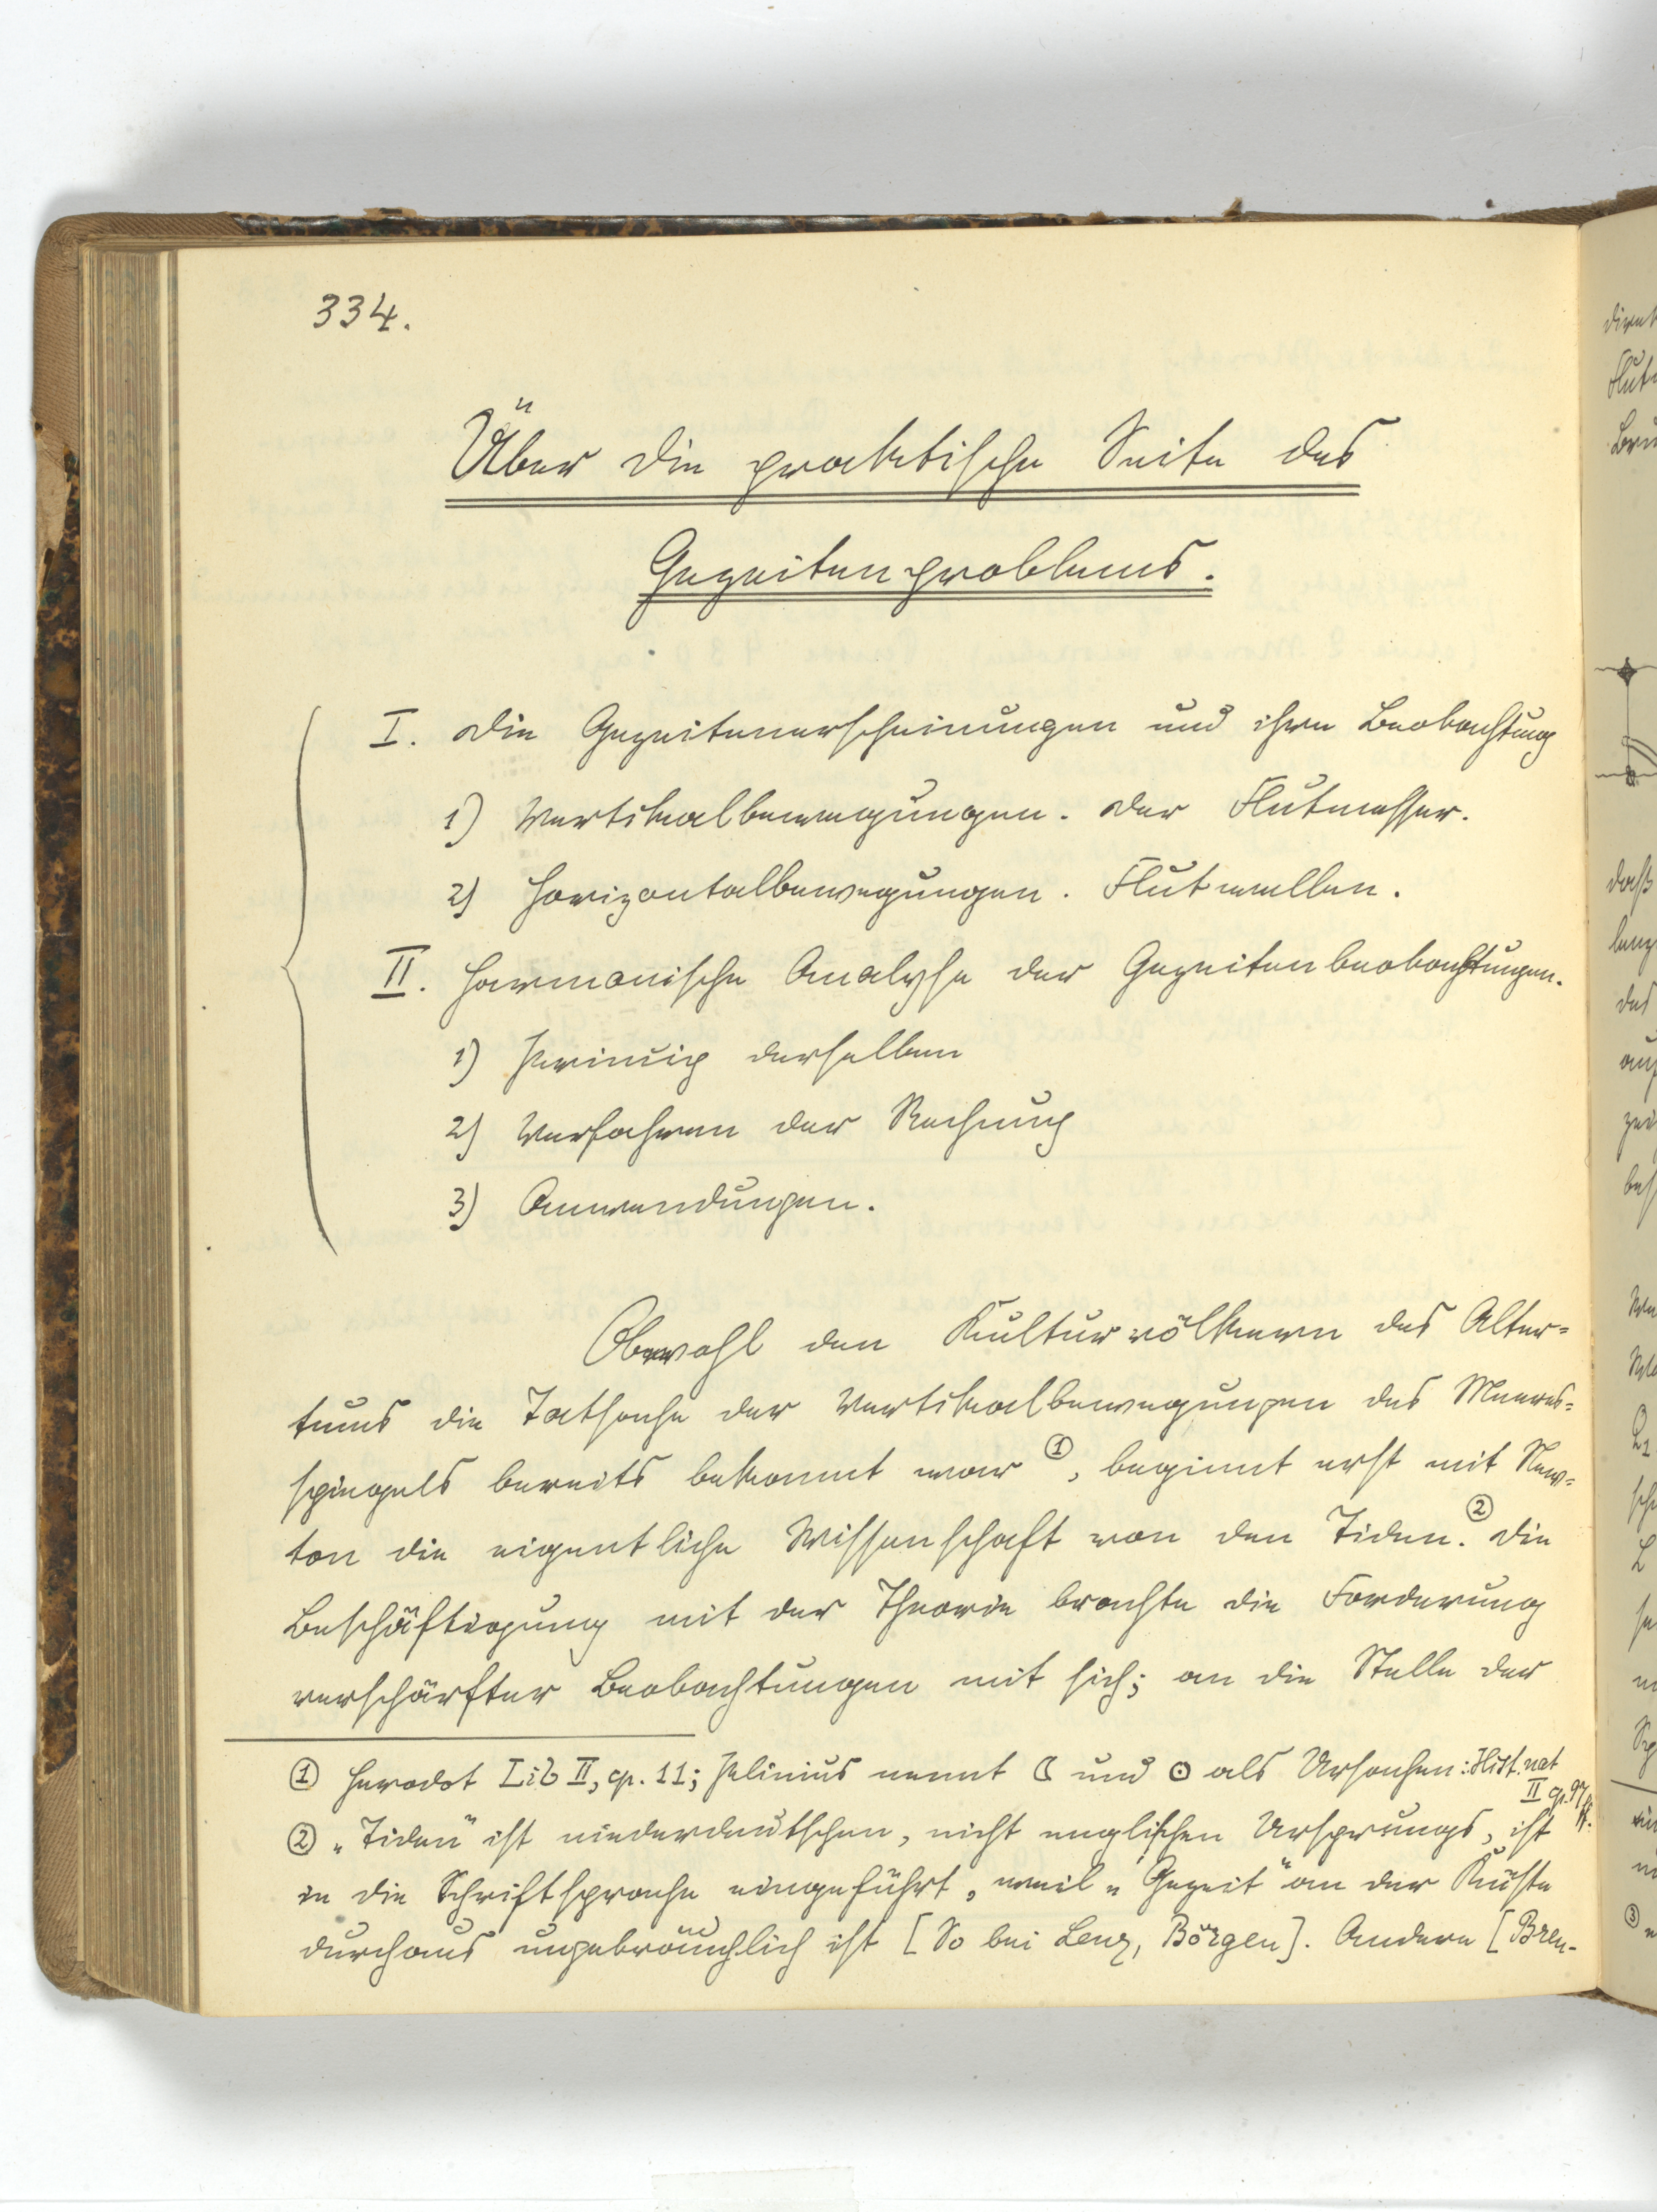 334.
Über die praktische Seite des
Gezeitenproblems.
I. Die Gezeitenerscheinungen und ihre Beobachtung
1) Vertikalbewegungen. Der Flutmesser.
2) Horizontalbewegungen. Flutwellen.
II. Harmonische Analyse der Gezeitenbeobachtungen.
1) Prinzip derselben
2) Verfahren der Rechnung
3) Anwendungen.
Obwohl den Kulturvölkern des Alter=
tums die Tatsache der Vertikalbewegungen des Meeres=
spiegels bereits bekannt war ①, beginnt erst mit New=
ton die eigentliche Wissenschaft von den Tiden. ② Die
Beschäftigung mit der Theorie brachte die Forderung
verschärfter Beobachtungen mit sich; an die Stelle der
① Herodot Lib II, cp. 11; Plinius nennt ☾ und ☉ als Ursachen: Hist. nat
II cp. 97
② „Tiden" ist niederdeutschen, nicht englischen Ursprungs, ist
in die Schriftsprache eingeführt, weil „Gezeit" an der Küste
durchaus ungebräuchlich ist [So bei Lenz, Börgen]. Andere [Bren-